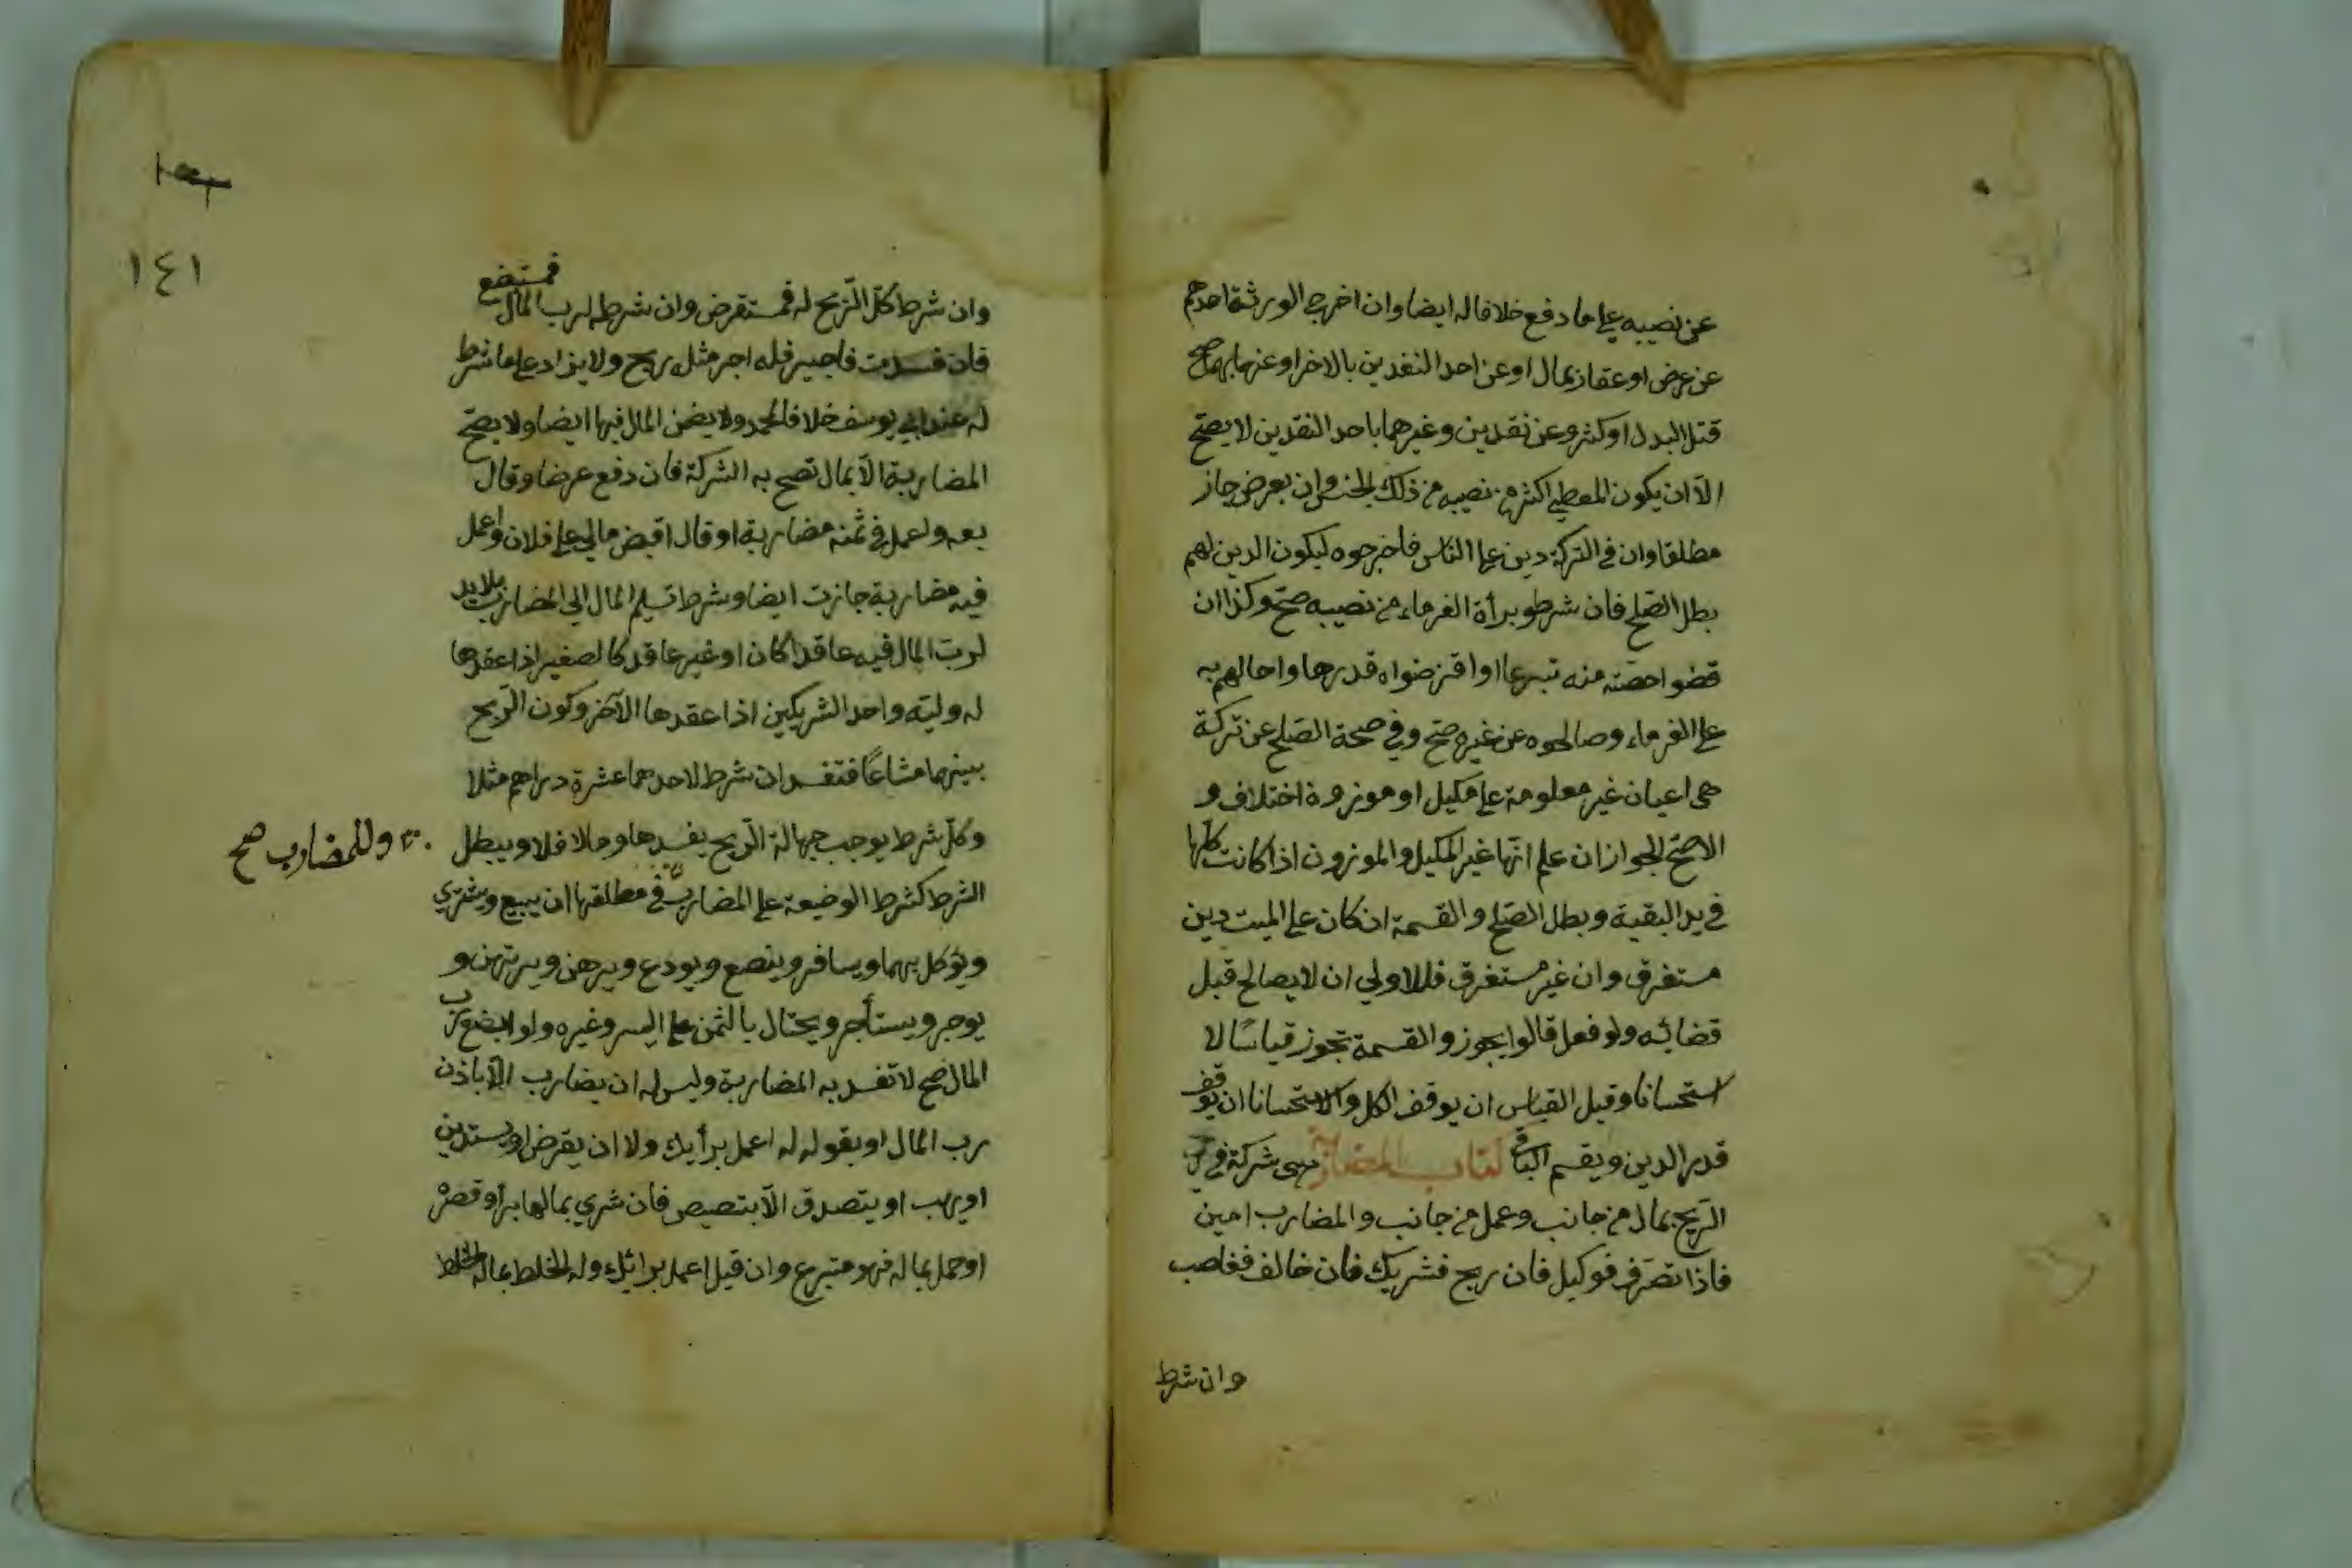 عن نصيبه على ما دفع خلافا له ايضا وان اخرج الورثة احدهم
عن عرض او عقار بمال او عن احد النقدين بالاخر او عنهما بهما صح
قتل البدل او كثر وعن نقدين وغيرهما باحد النقدين لا يصح
الا ان يكون المعطى اكثر من نصيبه من ذلك الجنس وان بعرض جاز
مطلقا وان في التركة دين على الناس فاخرجوه ليكون الدين لهم
بطل الصلح فان شرطو برأة الغرماء من نصيبه صح وكذا ان
قضوا حصته منه تبرعا او اقرضواه قدرها واحالهم به
على الغرماء وصالحوه عن غيره صح وفي صحة الصلح عن تركة
هى اعيان غير معلومة على مكيل او موزوة اختلاف و
الاصح الجواز ان علم انها غير المكيل والموزون اذا كانت كلها
في يد البقية وبطل الصلح والقسمة ان كان على الميت دين
مستغرق وان غير مستغرق فللاولي ان لا يصالح قبل
قضائه ولو فعل قالوا يجوز والقسمة تجوز قياسًا لا
استحسانا وقيل القياس ان يوقف الكل والاستحسانا ان يوقف
قدر الدين ويقسم الباقي كتاب المضاربة هى شركة في
الربح بمال من جانب وعمل من جانب والمضارب امين
فاذا تصرف فوكيل فان ربح فشريك فان خالف فغاصب
وان شرط
١٤١
وان شرط كل الربح له فمستقرض وان شرطه لرب المال فمستبضع
فان فسدت فاجير فله اجر مثل ربح ولا يزاد على ما شرط
له عند ابي يوسف خلافا لمحمد ولا يضمن المال فيها ايضا ولا يصح
المضاربة الا بمال تصح به الشركة فان دفع عرضا وقال
بعه واعمل في ثمنه مضاربة او قال اقبض مالي على فلان واعمل
فيه مضاربة جازت ايضا وشرط تسليم المال الى المضارب بلا يد
لرب المال فيه عاقدا كان او غير عاقد كالصغير اذا عقدها
له وليته واحد الشريكين اذا عقدها الآخر وكون الربح
بينهما مشاعًا فتفسد ان شرط لاحدهما عشرة دراهم مثلا
وكل شرط يوجب جهالة الربح يفسدها وما لا فلا ويبطل
وللمضارب صح
الشرط كشرط الوضيعة على المضارب في مطلقها ان يبيع ويشتري
ويؤكل بهما ويسافر ويبضع ويودع ويرهن ويرتهن و
يوجر ويستأجر ويحتال بالثمن على اليسر وغيره ولو ابضع رب
المال صح لا تفسد به المضاربة وليس له ان يضارب الا باذن
رب المال او بقوله له اعمل برأيك ولا ان يقرض او يستدين
او يهب او يتصدق الا بتصيص فان شري بمالها برا وقصر
او حمل بماله فهو متبرع وان قيل اعمل برائك وله الخلط بماله